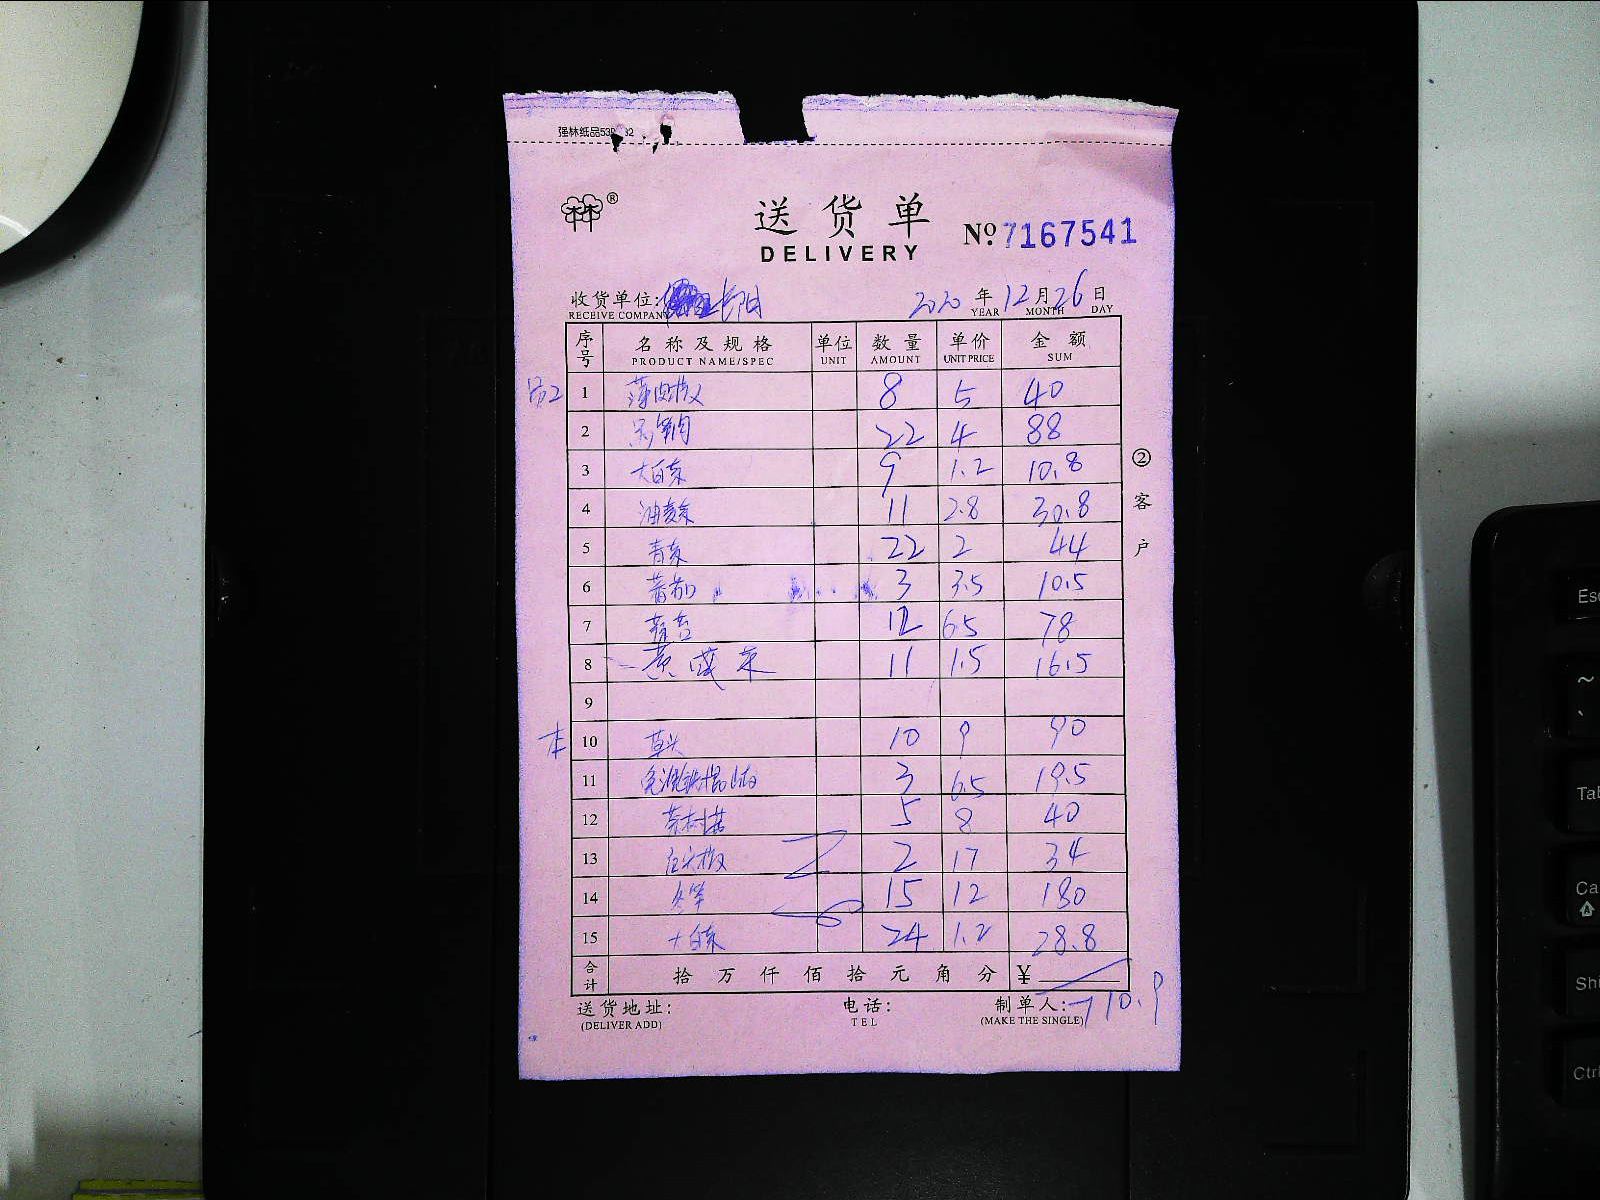 强林纸品
®
送货单
DELIVERY
№ 7167541
收货单位:
RECEIVE COMPANY
2020 年 12 月 26 日
YEAR MONTH DAY
序号 名称及规格 单位 数量 单价 金额
PRODUCT NAME/SPEC UNIT AMOUNT UNIT PRICE SUM
员工 1 薄皮椒 8 5 40
2 22 4 88
3 大白菜 9 1.2 10.8
4 油麦菜 11 2.8 30.8
5 青菜 22 2 44
6 蕃茄 3 3.5 10.5
7 12 6.5 78
8 黄咸菜 11 1.5 16.5
9
本 10 草头 10 9 90
11 铁棍山药 3 6.5 19.5
12 茶树菇 5 8 40
13 2 17 34
14 冬笋 15 12 180
15 大白菜 24 1.2 28.8
合计 拾 万 仟 佰 拾 元 角 分 ¥
710.9
送货地址: 电话: 制单人:
(DELIVER ADD) TEL (MAKE THE SINGLE)
② 客户
Esc
~
Shi
Ctrl